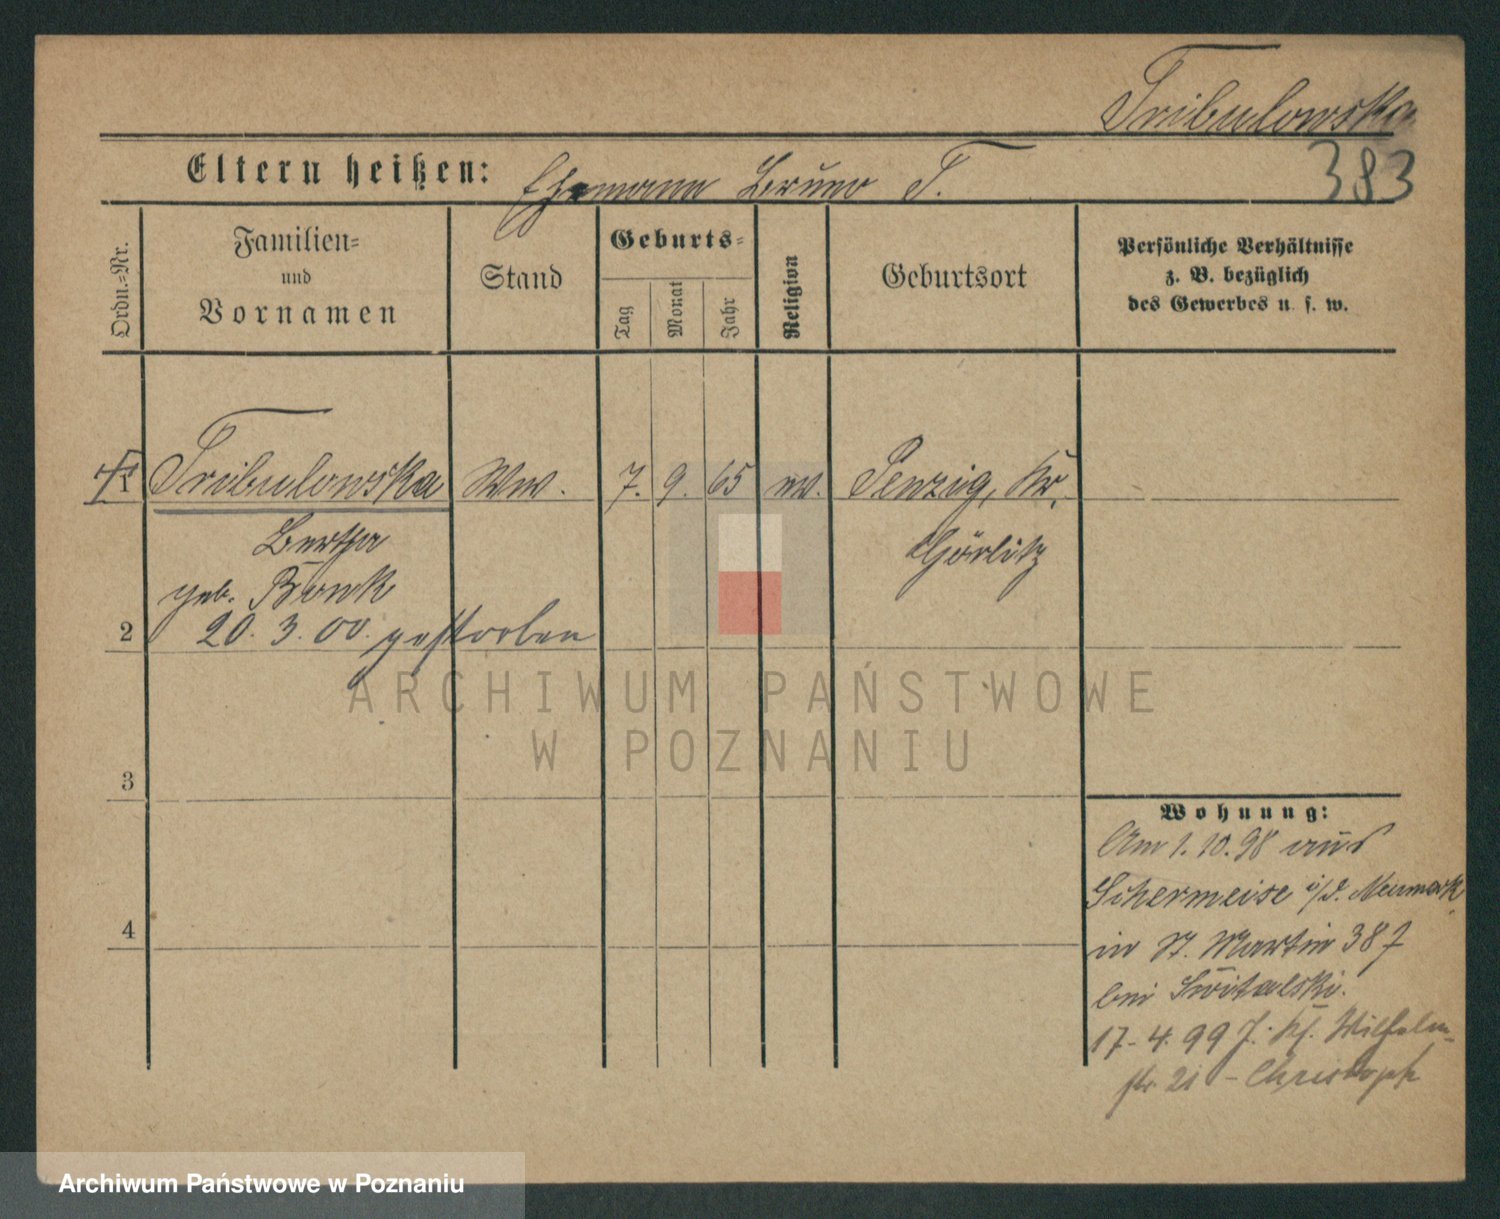 Tribulowska
383
Eltern heißen: Ehemann Bruno T.
Ordn.-Nr.
Familien-
und
Vornamen
Stand
Geburts-
Tag
Monat
Jahr
Religion
Geburtsort
Persönliche Verhältnisse
z. B. bezüglich
des Gewerbes u. s. w.
1 Tribulowska Ww. 7. 9. 65 ev. Penzig, Kr.
Bertha Görlitz
geb.
2 20. 3. 00. gestorben
3
4
Wohnung:
Am 1. 10. 98 aus
Schermeise i/d. Neumark
in St. Martin 38
bei Switalski.
17. 4. 99 Wilhelm-
str. 21 - Christoph
ARCHIWUM PAŃSTWOWE
W POZNANIU
Archiwum Państwowe w Poznaniu